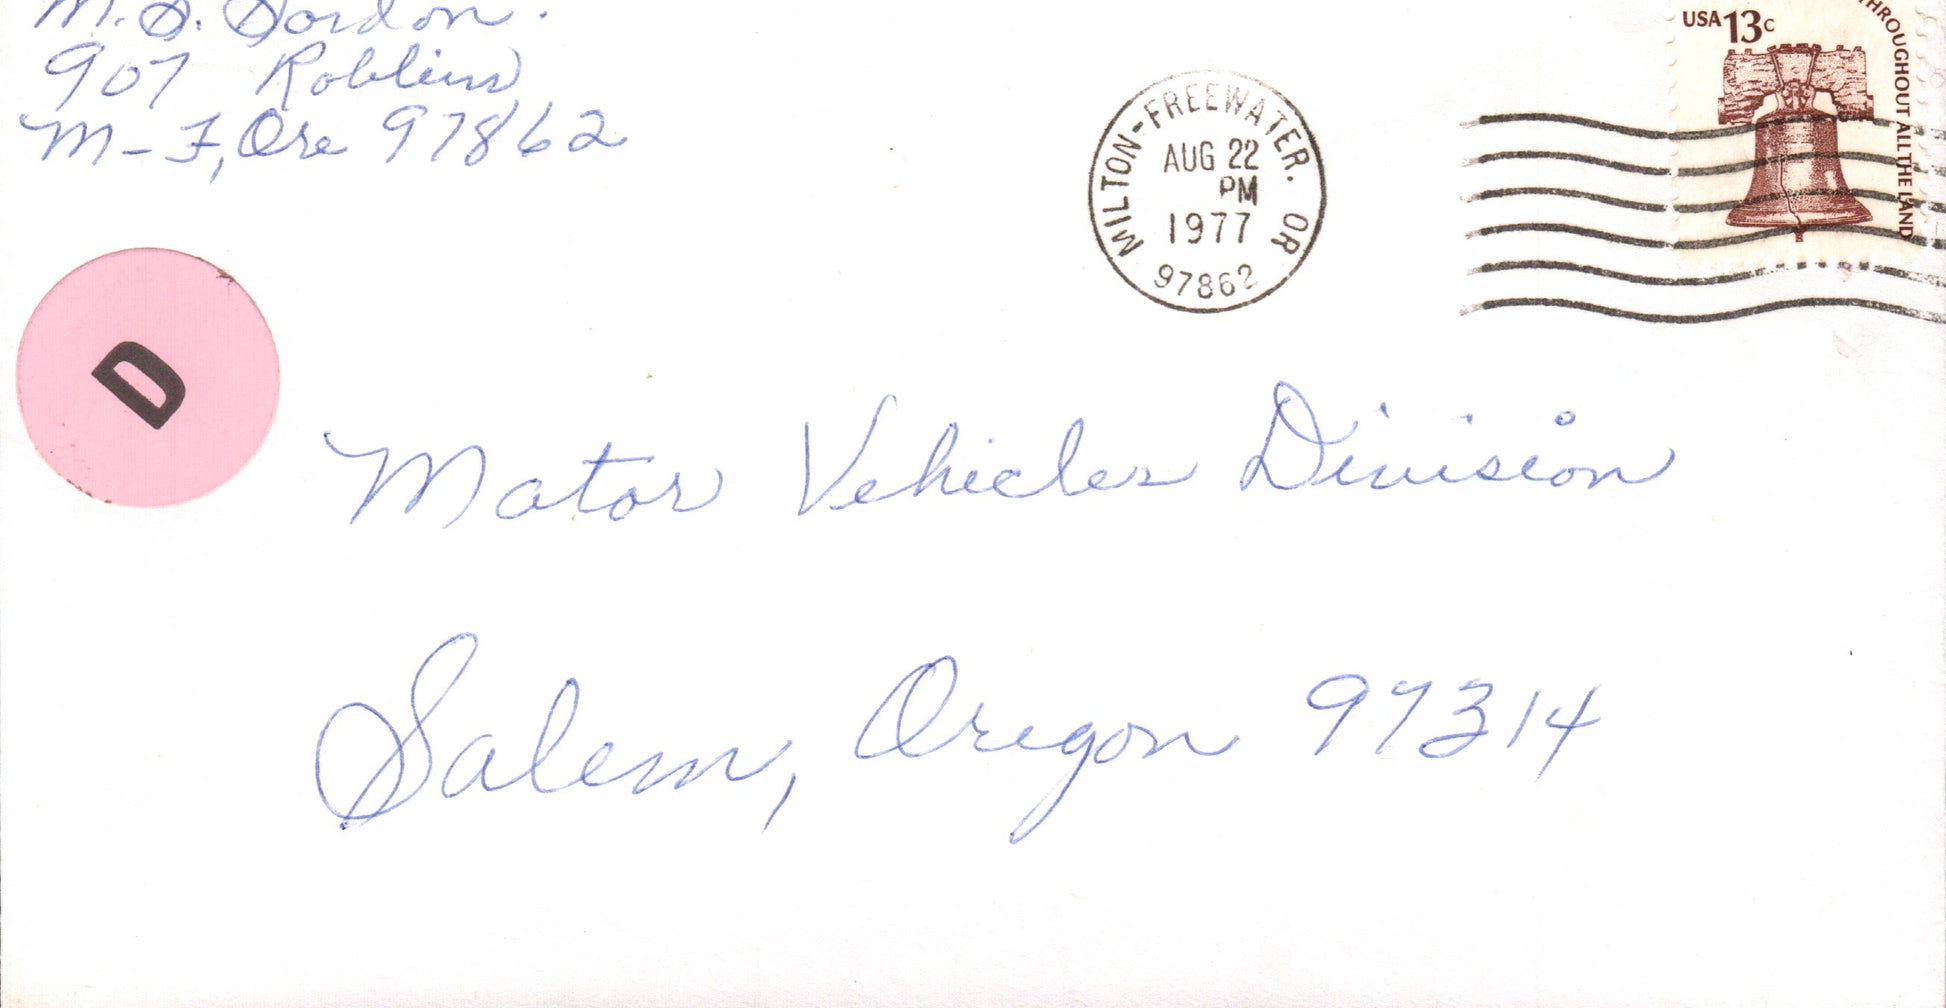 M. S. Gordon.
907 Robbins
M-F, Ore 97862
USA 13c
THROUGHOUT ALL THE LAND
MILTON-FREEWATER. OR
AUG 22
PM
1977
97862
D
Motor Vehicles Division
Salem, Oregon 97314